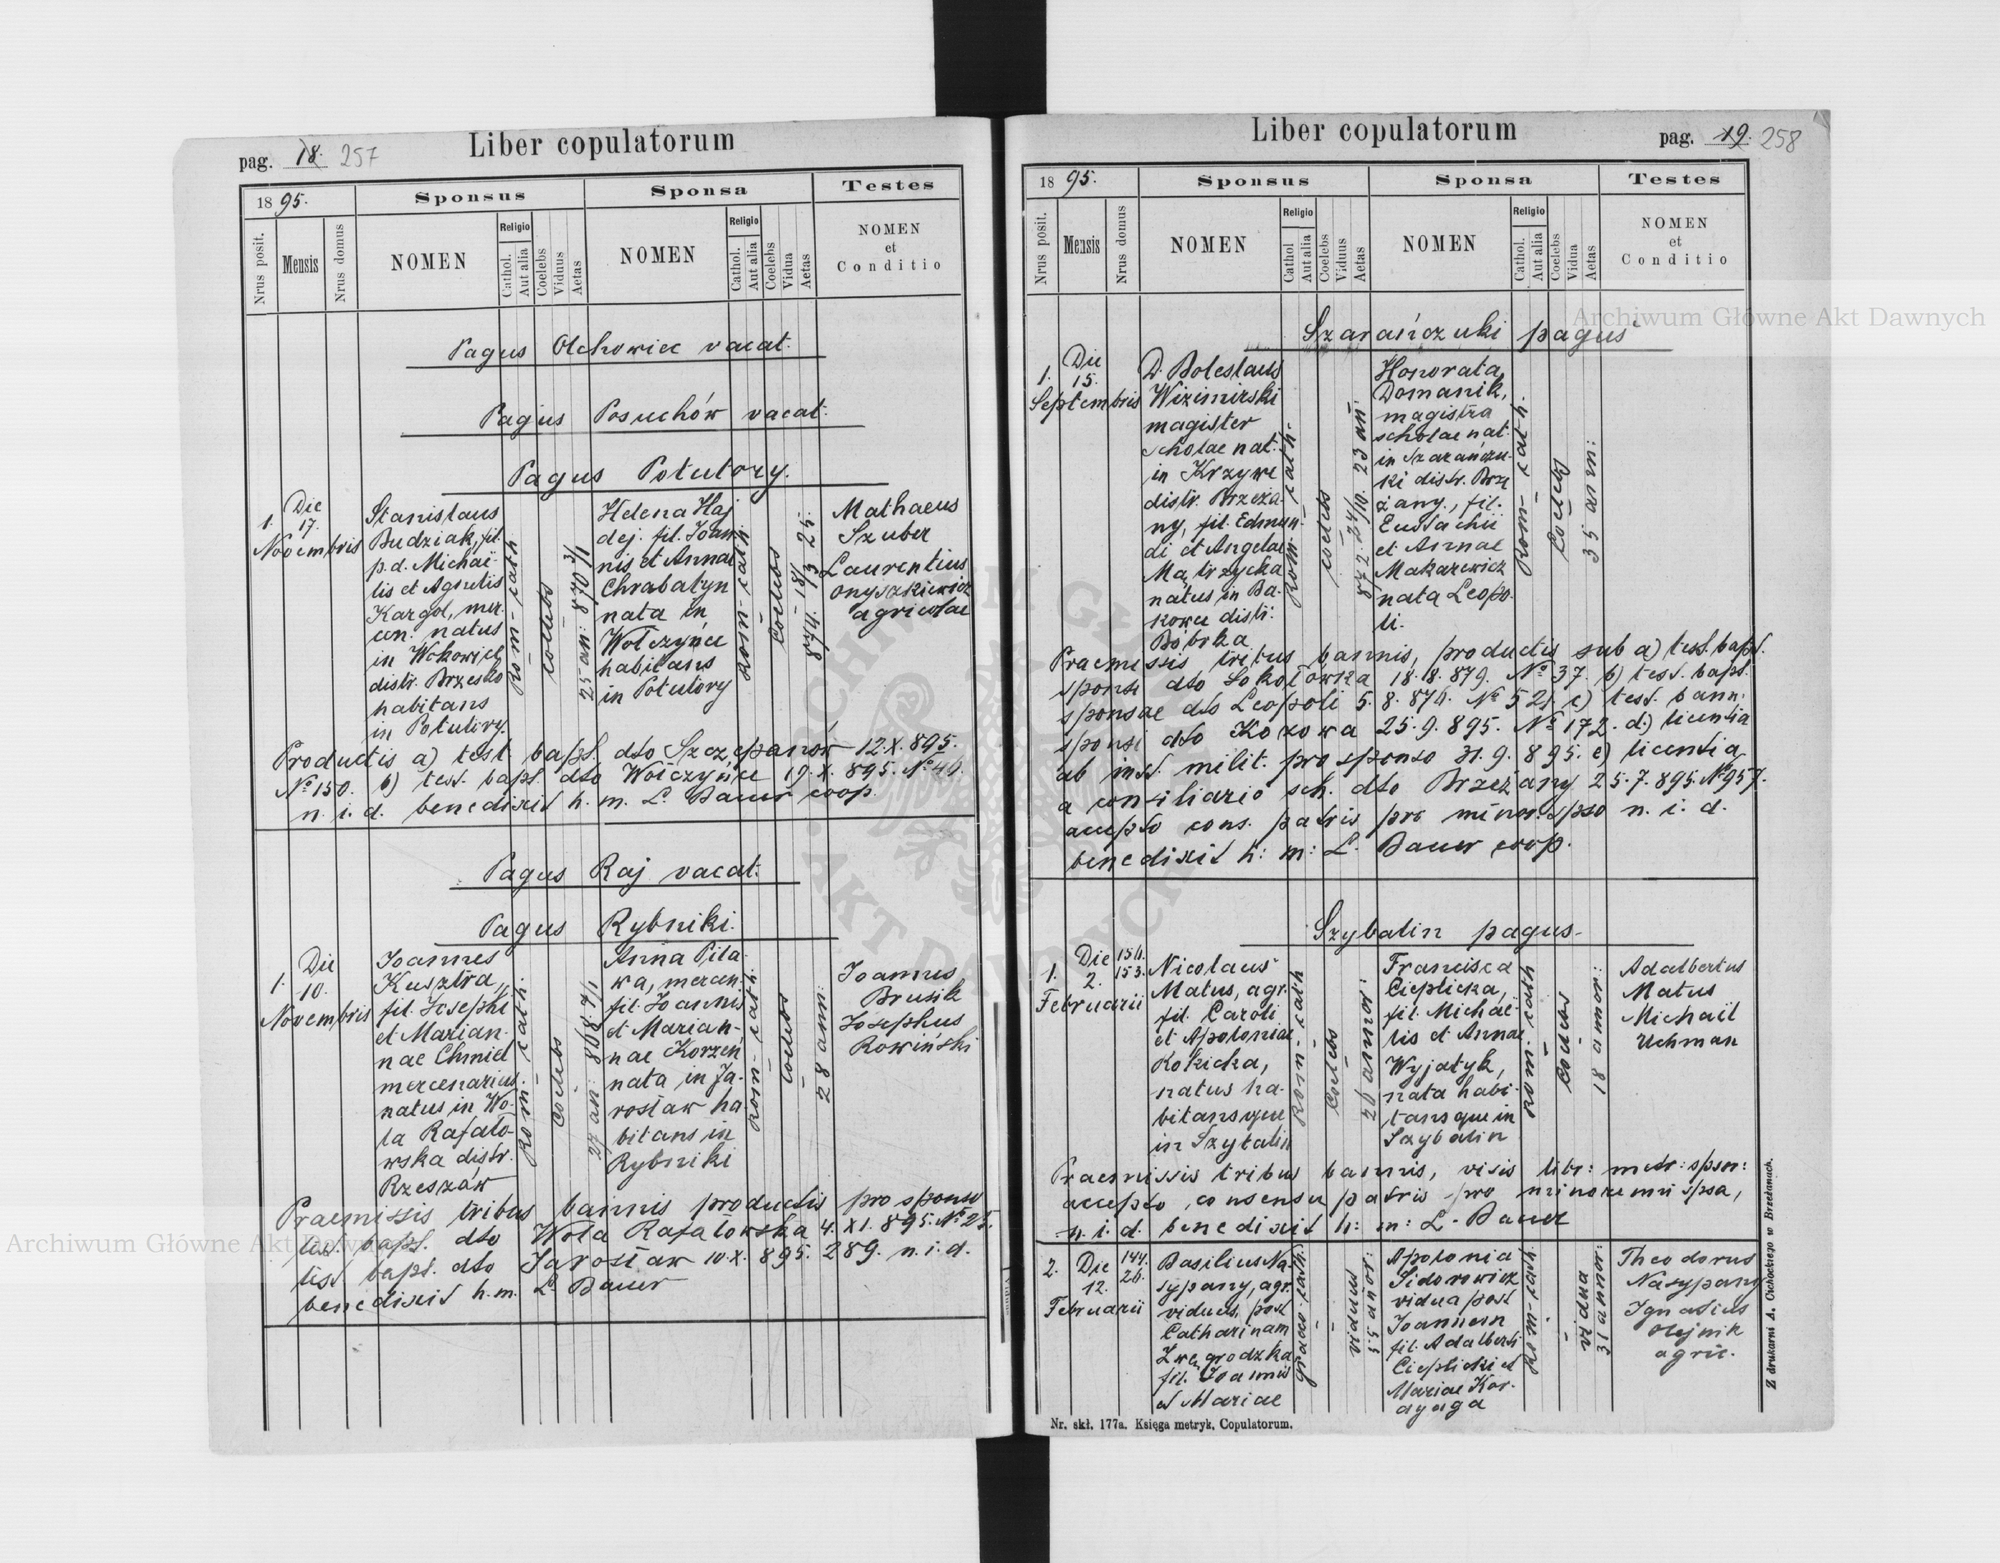 pag. 18. 257
Liber copulatorum
1895.
Sponsus
Sponsa
Testes
Nrus posit.
Mensis
Nrus domus
NOMEN
Religio
Cathol.
Aut alia
Coelebs
Viduus
Aetas
NOMEN
Religio
Cathol.
Aut alia
Coelebs
Vidua
Aetas
NOMEN
et
Conditio
Pagus Olchowiec vacat.
Pagus Posuchów vacat.
Pagus Potutory.
1.
Die
17.
Novembris
Stanislaus
Budziak, fil.
p.d. Michaë-
lis et Agnetis
Kargol, mer-
cen. natus
in
distr. Brzesko
habitans
in Potutory.
Rom-cath
coelebs
25 an: 870 3/1
Helena Haj
dej. fil. Joan
nis et Annae
Chrabatyn
nata in
Wołczyńce
habitans
in Potutory
Rom-cath
coelebs
874. 18/3 25.
Mathaeus
Szuber
Laurentius
Onyszkiewicz
agricolae
Productis a) test. bapt. dto Szczepanów 12.X.895.
№ 150. b) test. bapt. dto Wołczyńce 19.X.895. № 40.
n. i. d. benedixit h. m. L. Bauer coop.
Pagus Raj vacat.
Pagus Rybniki.
1.
Die
10.
Novembris
Joannes
Kusztra,
fil. Josephi
et Marian-
nae Chmiel
mercenarius
natus in Wo-
la Rafało-
wska distr.
Rzeszów
Rom-cath.
coelebs
27 an: 868. 7/1
Anna Piła-
wa, mercen.
fil. Joannis
et Marian-
nae Korzeń
nata in Ja-
rosław ha-
bitans in
Rybniki
Rom-cath.
coelebs
28 ann:
Joannes
Brusik
Josephus
Rowiński
Praemissis tribus bannis productis pro sponso
test. bapt. dto Wola Rafałowska 4. XI. 895. № 25.
test. bapt. dto Jarosław 10.X.895. 289. n. i. d.
benedixit h. m. L. Bauer
pag. 19. 258
Liber copulatorum
1895.
Sponsus
Sponsa
Testes
Nrus posit.
Mensis
Nrus domus
NOMEN
Religio
Cathol
Aut alia
Coelebs
Viduus
Aetas
NOMEN
Religio
Cathol.
Aut alia
Coelebs
Vidua
Aetas
NOMEN
et
Conditio
Szarańczuki pagus
1.
Die
15.
Septembris
D. Boleslaus
Wizimirski
magister
scholae nat.
in Krzywe
distr. Brzeża-
ny, fil. Edmun-
di et Angelae
Mątrzycka
natus in Ba-
kowce distr.
Bóbrka
Rom-cath.
coelebs
872. 24/10. 23 an.
Honorata
Domanik,
magistra
scholae nat.
in Szarańczu-
ki distr. Brze
żany, fil.
Eustachii
et Annae
Makarewicz
nata Leopo-
li.
Rom-cath.
coelebs
35 ann:
Praemissis tribus bannis, productis sub a) test. bapt.
sponsi dto Sokołówka 18.18.879. № 37. b) test. bapt.
sponsae dto Leopoli 5.8.874. № 52/ c) test. bann.
sponsi dto Kozowa 25.9.895. № 172. d) licentia
ab inst. milit. pro sponso 31.9.895. e) licentia
a consiliario sch. dto Brzeżany 25.7.895 № 957.
accepto cons. patris pro minor. spso n. i. d.
benedixit h: m: L. Bauer coop.
Szybalin pagus.
1.
Die
2.
Februarii
154.
153.
Nicolaus
Matus, agr.
fil. Caroli
et Apoloniae
Kokicka,
natus ha-
bitansque
in Szybalin
Rom-cath
coelebs
26 annor:
Francisca
Cieplicka,
fil. Michaë-
lis et Annae
Wyjatyk,
nata habi-
tansque in
Szybalin
Rom-cath
coelebs
18 annor:
Adalbertus
Matus
Michaël
Uchman
Praemissis tribus bannis, visis libr: metr: spson:
accepto consensu patris pro minorenni spsa,
n. i. d. benedixit h: m: L. Bauer
2.
Die
12.
Februarii
144.
26.
Basilius Na-
sypany, agr.
viduus, post
Catharinam
Zwągrodzka
fil. Joannis
et Mariae
graeco-cath.
viduus
55 annor:
Apolonia
Sidorowicz
vidua post
Joannem
fil. Adalberti
Cieplicki et
Mariae Kor-
dyaga
Rom-cath.
vidua
31 annor:
Theodorus
Nasypany
Ignatius
Olejnik
agric.
Nr. skł. 177a. Księga metryk, Copulatorum.
Z drukarni A. Cuchockiego w Brzeżanach.
Archiwum Główne Akt Dawnych
Archiwum Główne Akt Dawnych